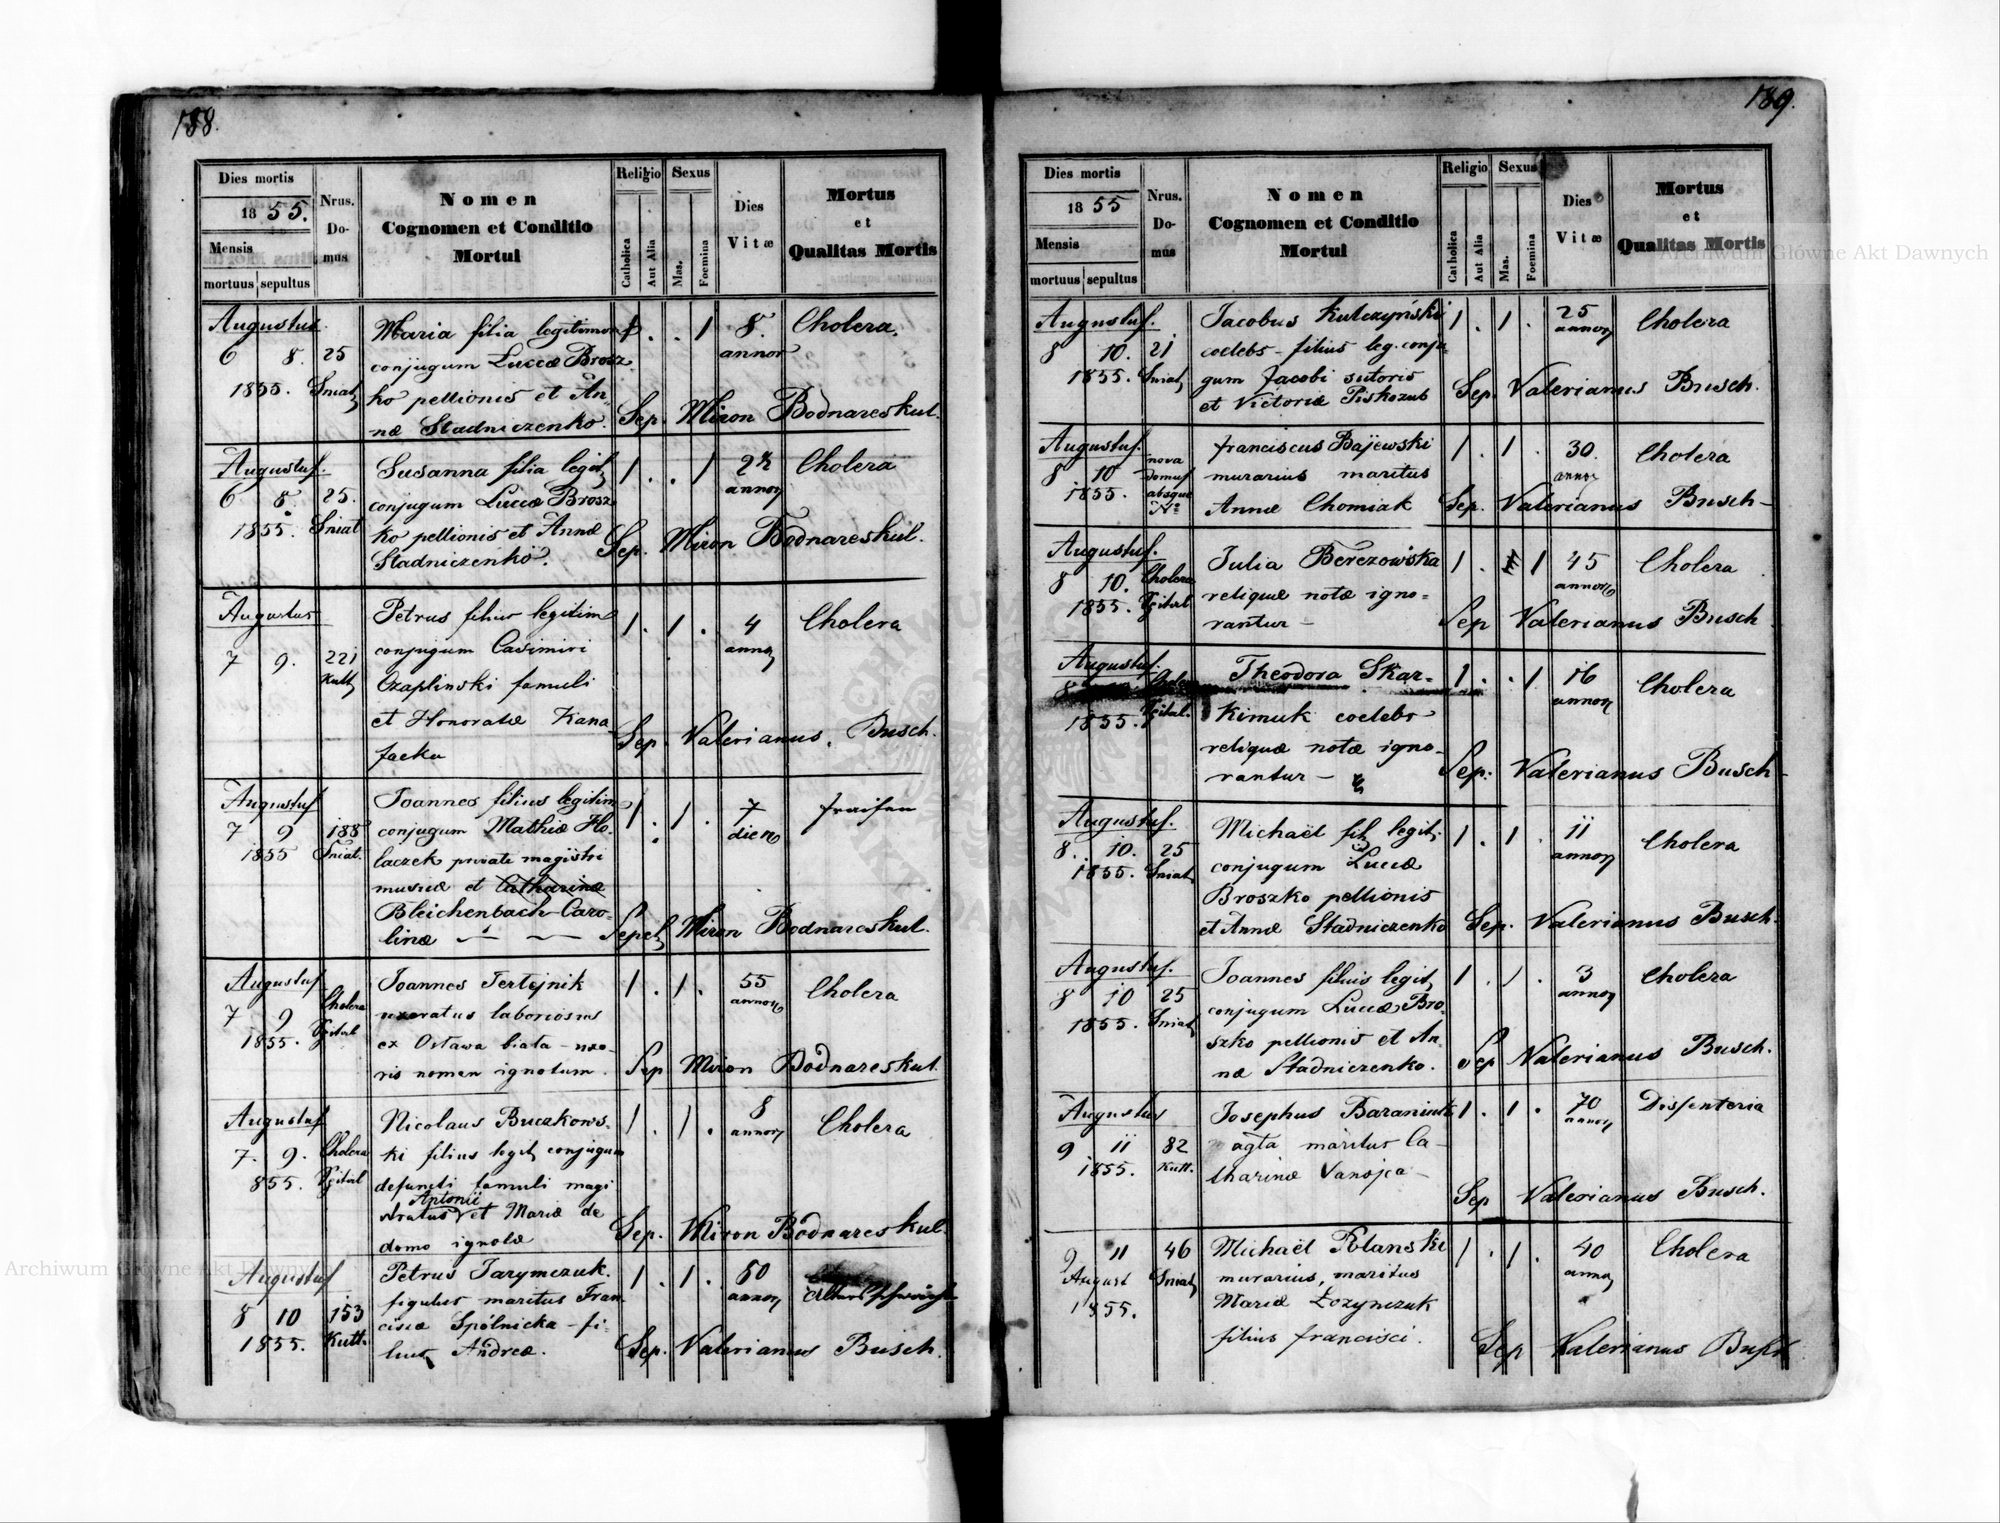 188.
Dies mortis
1855.
Mensis
mortuus sepultus
Nrus.
Do-
mus
Nomen
Cognomen et Conditio
Mortui
Religio
Catholica
Aut Alia
Sexus
Mas.
Foemina
Dies
Vitæ
Mortus
et
Qualitas Mortis
Augustus
6 8. 25
1855. Sniat
Maria filia legitimor
conjugum Lucæ Brosz
ko pellionis et An-
næ Stadniczenko.
1 . . 1
8.
annor
Cholera.
Sep. Miron Bodnareskul.
Augustus.
6 8. 25.
1855. Sniat
Susanna filia legit
conjugum Lucæ Brosz
ko pellionis et Annæ
Stadniczenko.
1 . . 1
2 ½
annor
Cholera
Sep. Miron Bodnareskul.
Augustus
7 9. 221
Kutt
Petrus filius legitim
conjugum Casimiri
Czaplinski famuli
et Honoratæ Kana
facka
1 . 1 .
4
annor
Cholera
Sep. Valerianus Busch.
Augustus
7 9 188
1855 Sniat.
Joannes filius legitim
conjugum Mathiæ Ho-
laczek privati magistri
musicæ et Catharinæ
Bleichenbach Caro-
linæ
1 . 1 .
7
dierum
fraisen
Sepel Miron Bodnareskul.
Augustus
7 9 Cholera
1855. Spital
Joannes Tertejnik
uxoratus laboriosus
ex Ostawa biata - uxo-
ris nomen ignotum.
1 . 1 .
55
annorum
Cholera
Sep Miron Bodnareskul.
Augustus
7. 9. Cholera
855. Spital
Nicolaus Buczkows-
ki filius legit conjugum
defuncti famuli magi
Antonii
stratus et Mariæ de
domo ignotæ
1 . 1 .
8
annor
Cholera
Sep. Miron Bodnareskul.
Augustus
8 10 153
1855. Kutt.
Petrus Tarymczuk.
figulus maritus Fran
ciscæ Spólnicka - fi-
lius Andreæ.
1 . 1 .
50
annor
Sep. Valerianus Busch.
189.
Dies mortis
1855
Mensis
mortuus sepultus
Nrus.
Do-
mus
Nomen
Cognomen et Conditio
Mortui
Religio
Catholica
Aut Alia
Sexus
Mas.
Foemina
Dies
Vitæ
Mortus
et
Qualitas Mortis
Augustus.
8 10. 21
1855. Sniat
Jacobus Kulczyński
coelebs - filius leg. conju-
gum Jacobi sutoris
et Victoriæ Piskozub
1 . 1 .
25
annor
Cholera
Sep. Valerianus Busch.
Augustus.
8 10
1855.
nova
Domus
absque
No
Franciscus Bajewski
murarius maritus
Annæ Chomiak
1 . 1 .
30.
annor
Cholera
Sep. Valerianus Busch-
Augustus.
8 10. Cholera
1855. Spital
Julia Berezowska
reliquæ notæ igno-
rantur -
1 . 1
45
annorum
Cholera
Sep Valerianus Busch
Augustus.
8 Cholera
1855. Spital.
Theodora Skar-
kimuk coelebs
reliquæ notæ igno-
rantur -
1 . . 1
16
annor
Cholera
Sep. Valerianus Busch-
Augustus.
8. 10. 25
1855. Sniat
Michaël fil legit.
conjugum Lucæ
Broszko pellionis
et Annæ Stadniczenko
1 . 1 .
11
annor
Cholera
Sep. Valerianus Busch.
Augustus.
8 10 25
1855. Sniat
Joannes filius legit
conjugum Lucæ Bro-
szko pellionis et An
næ Stadniczenko.
1 . 1 .
3
annor
Cholera
Sep Valerianus Busch.
Augustus
9 11 82
1855. Kutt.
Josephus Baraniuk
agta maritus Ca-
tharinæ Vanojca-
1 . 1 .
70
annor
Dissenteria
Sep Valerianus Busch.
9 11 46
August Sniat
1855.
Michaël Polanski
murarius, maritus
Mariæ Łozynczuk
filius Francisci.
1 . 1 .
40
annor
Cholera
Sep Valerianus Busch
Archiwum Główne Akt Dawnych
Archiwum Główne Akt Dawnych